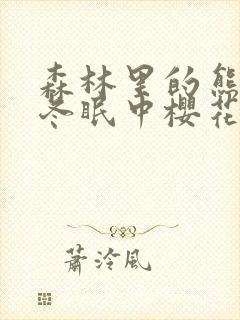 森林里的熊
冬眠中櫻花
蕭泠風